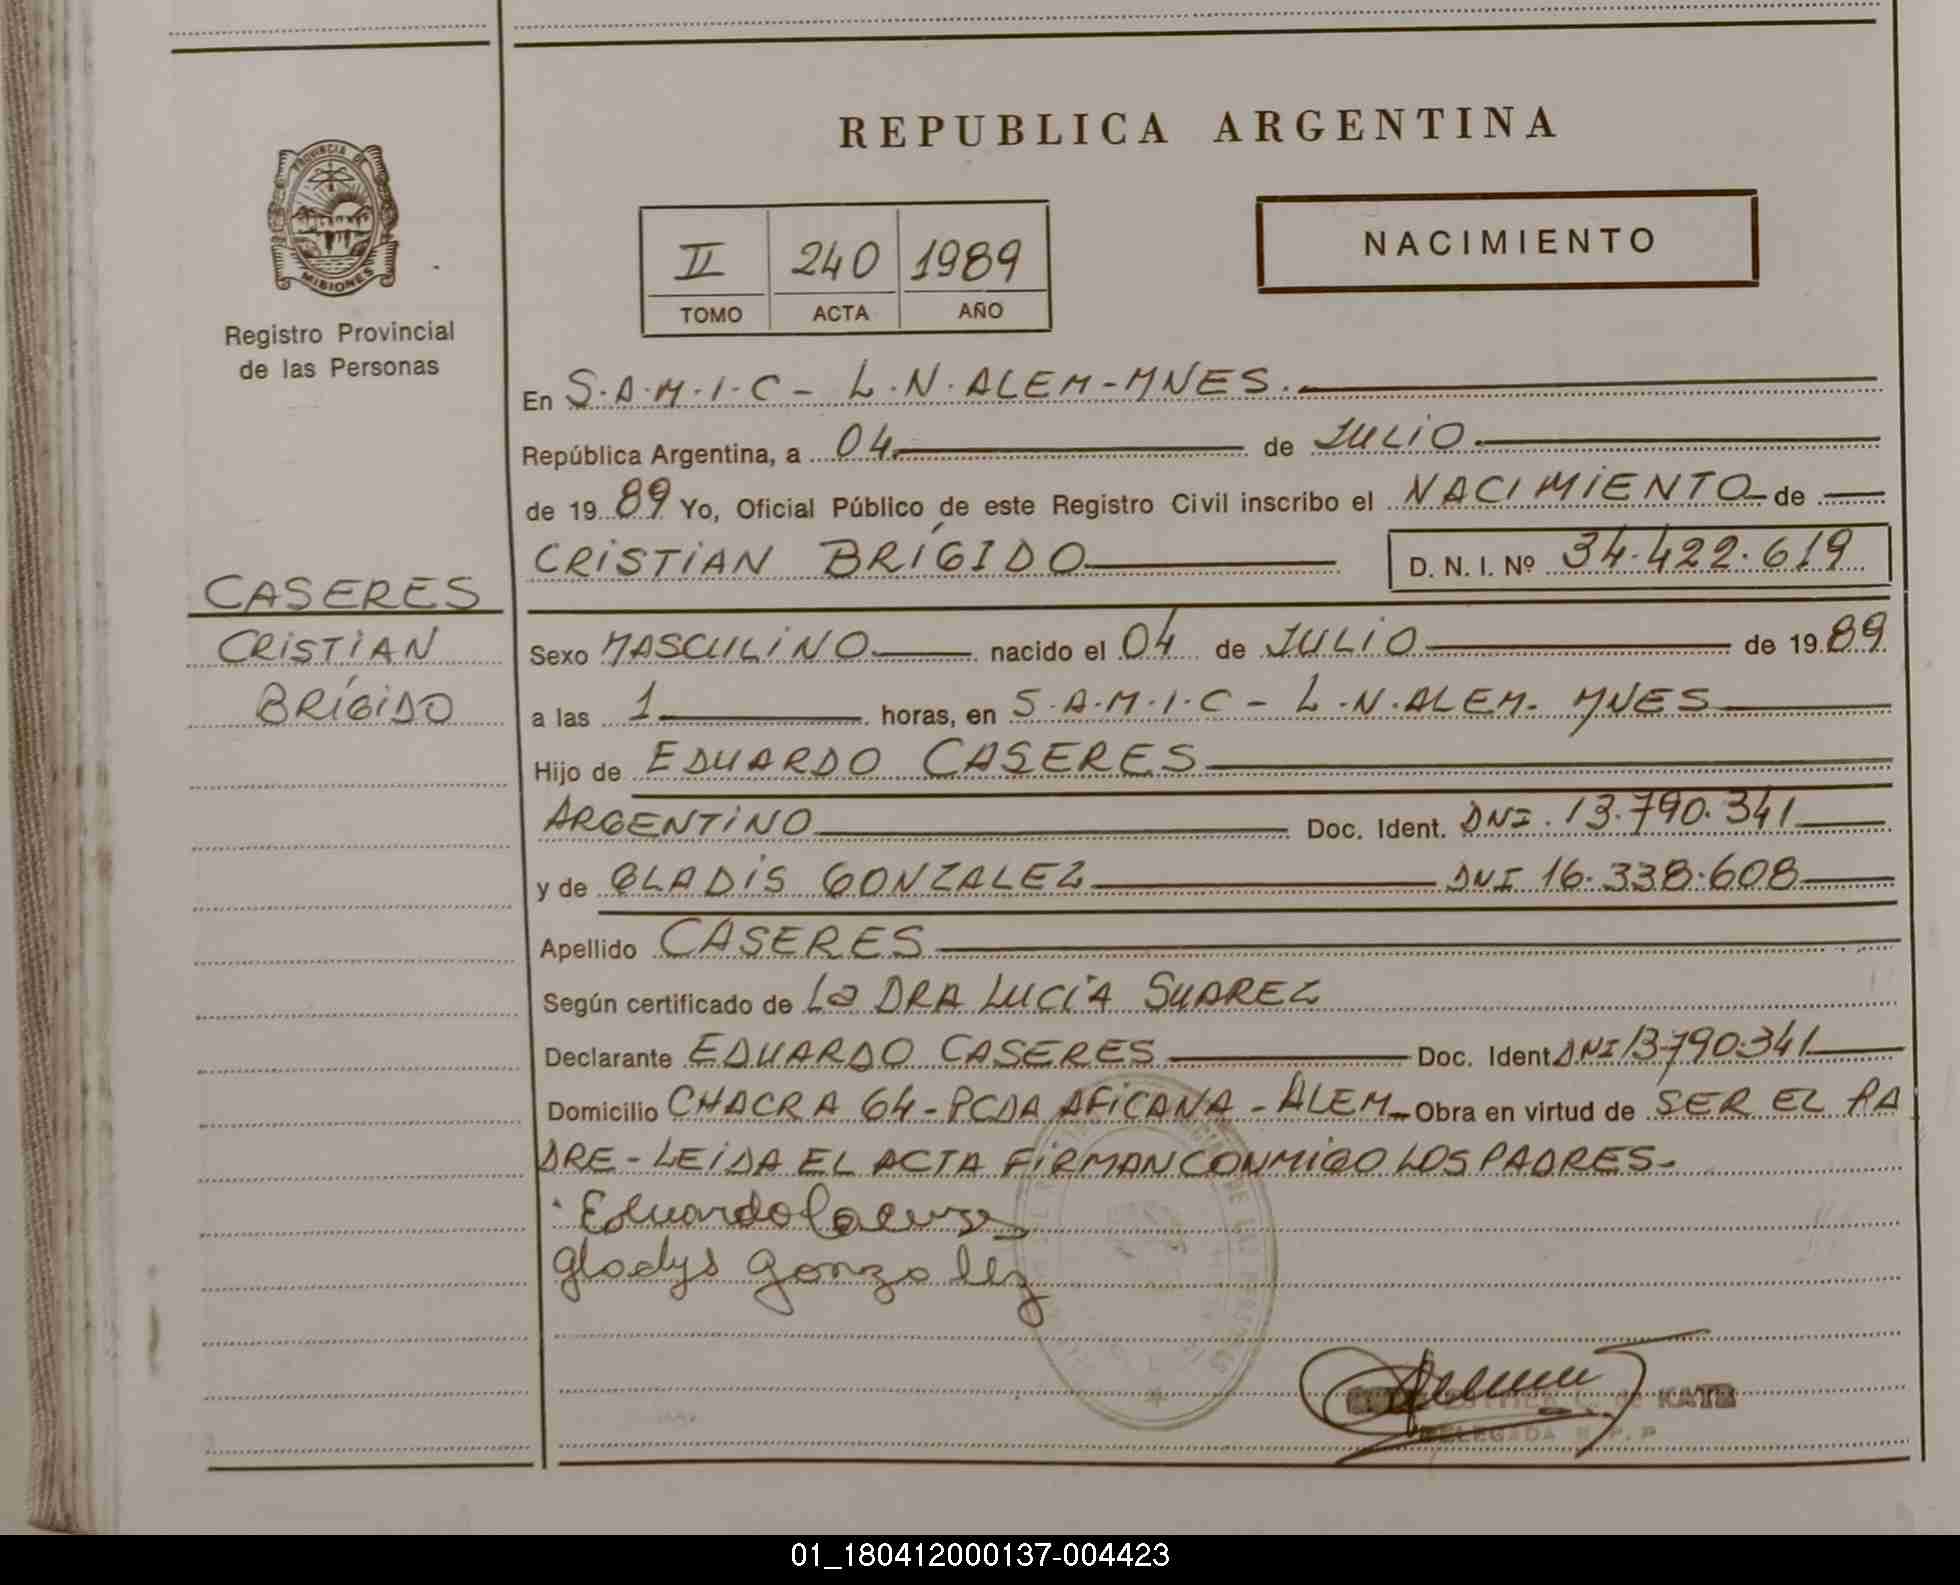 REPUBLICA ARGENTINA
PROVINCIA DE
MISIONES
Registro Provincial
de las Personas
II 240 1989
TOMO ACTA AÑO
NACIMIENTO
En S.A.M.I.C - L.N. ALEM - MNES.
República Argentina, a 04 de JULIO
de 1989 Yo, Oficial Público de este Registro Civil inscribo el NACIMIENTO de
CRISTIAN BRÍGIDO D. N. I. Nº 34.422.619
CASERES
CRISTIAN
BRÍGIDO
Sexo MASCULINO nacido el 04 de JULIO de 1989
a las 1 horas, en S.A.M.I.C - L.N. ALEM. MNES
Hijo de EDUARDO CASERES
ARGENTINO Doc. Ident. DNI. 13.790.341
y de GLADIS GONZALEZ DNI 16.338.608
Apellido CASERES
Según certificado de La DRA LUCÍA SUAREZ
Declarante EDUARDO CASERES Doc. Ident. DNI 13.790.341
Domicilio CHACRA 64 - PCDA AFICANA - ALEM Obra en virtud de SER EL PA
DRE - LEIDA EL ACTA FIRMAN CONMIGO LOS PADRES.
Eduardo Caceres
Gladys Gonzalez
ESTHER C. de KATZ
DELEGADA R.P.P
01_180412000137-004423